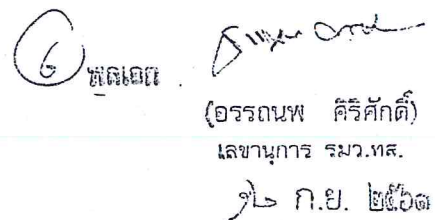 6
พลเอก
(อรรถนพ ศิริศักดิ์)
เลขานุการ รมว.ทส.
ก.ย. ๒๕๖๑